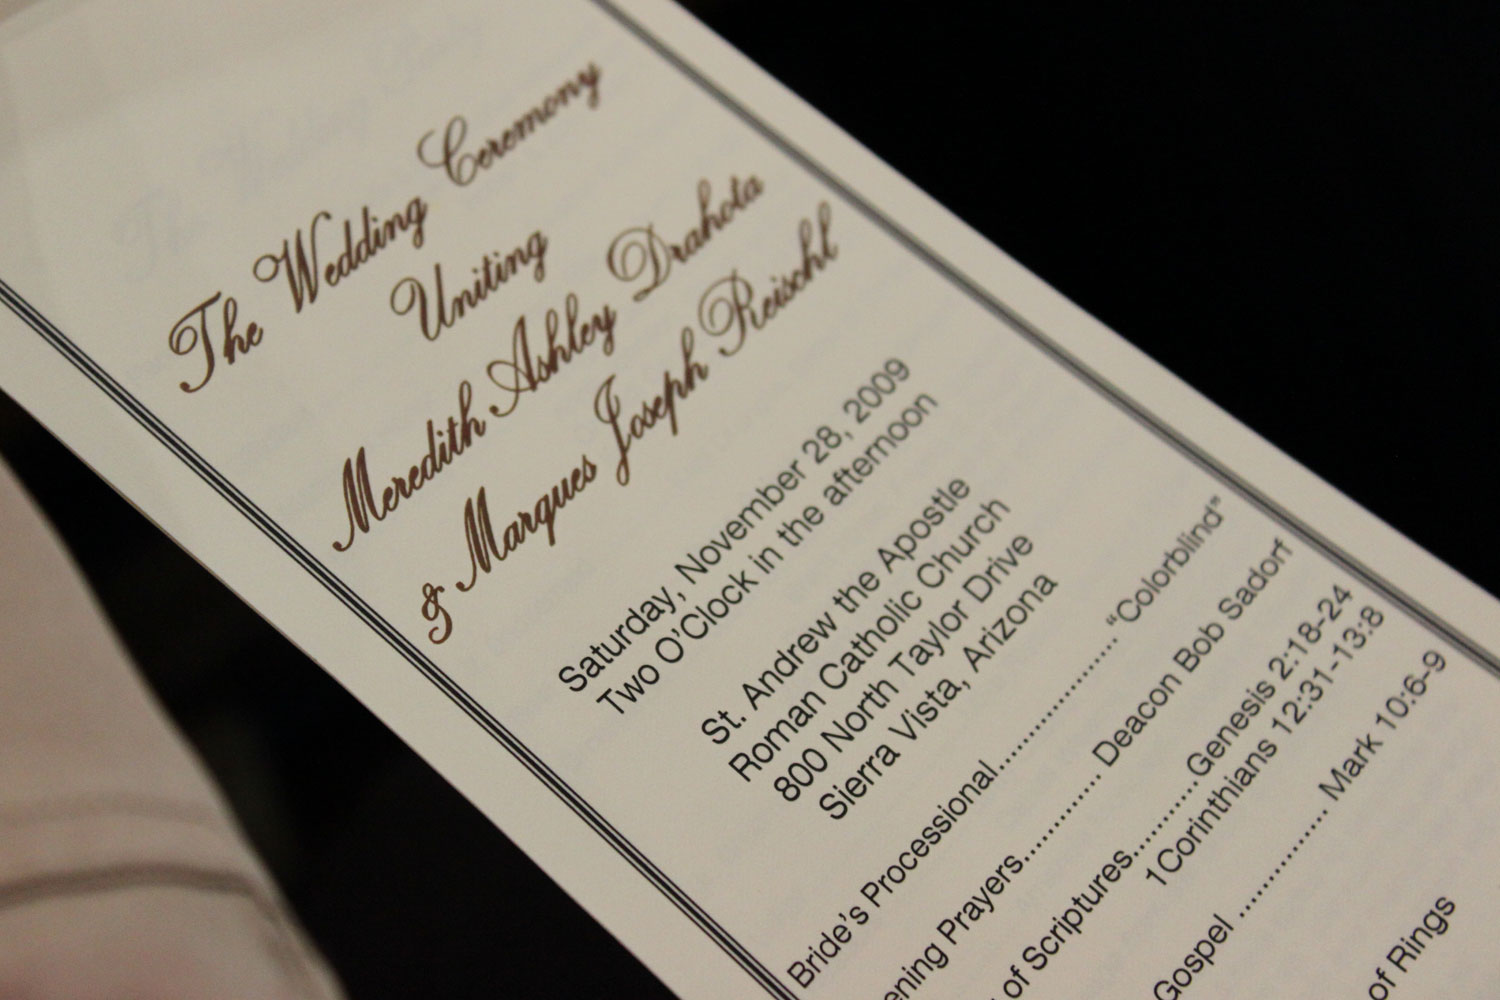 The Wedding Ceremony
Uniting
Meredith Ashley Drahota
& Marques Joseph Reischl
Saturday, November 28, 2009
Two O'Clock in the afternoon
St. Andrew the Apostle
Roman Catholic Church
800 North Taylor Drive
Sierra Vista, Arizona
Bride's Processional.................."Colorblind"
ening Prayers........... Deacon Bob Sadorf
of Scriptures..........Genesis 2:18-24
1Corinthians 12:31-13:8
Gospel ............... Mark 10:6-9
of Rings